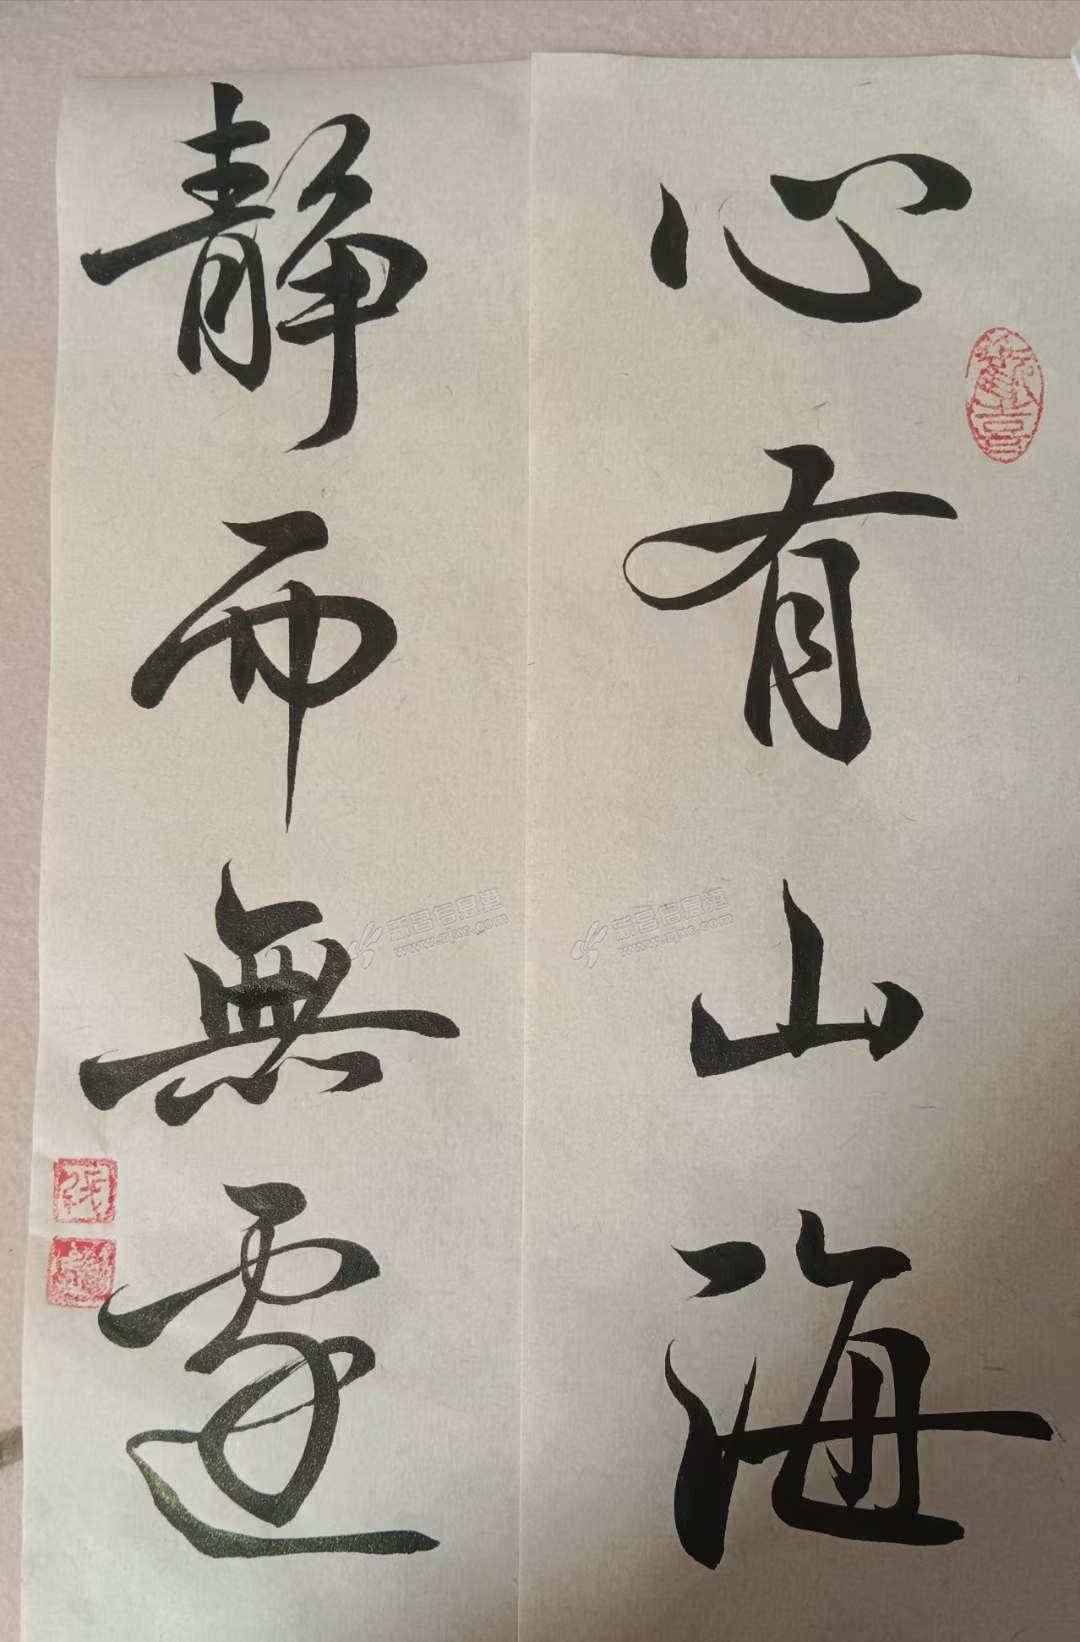 心有山海
静而無邊
新昌信息港
www.zjxc.com
新昌信息港
www.zjxc.com